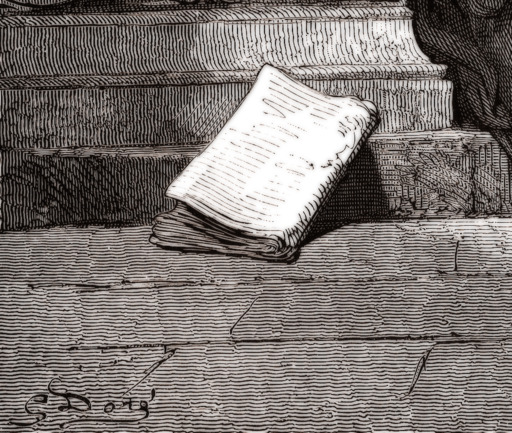 G Doré